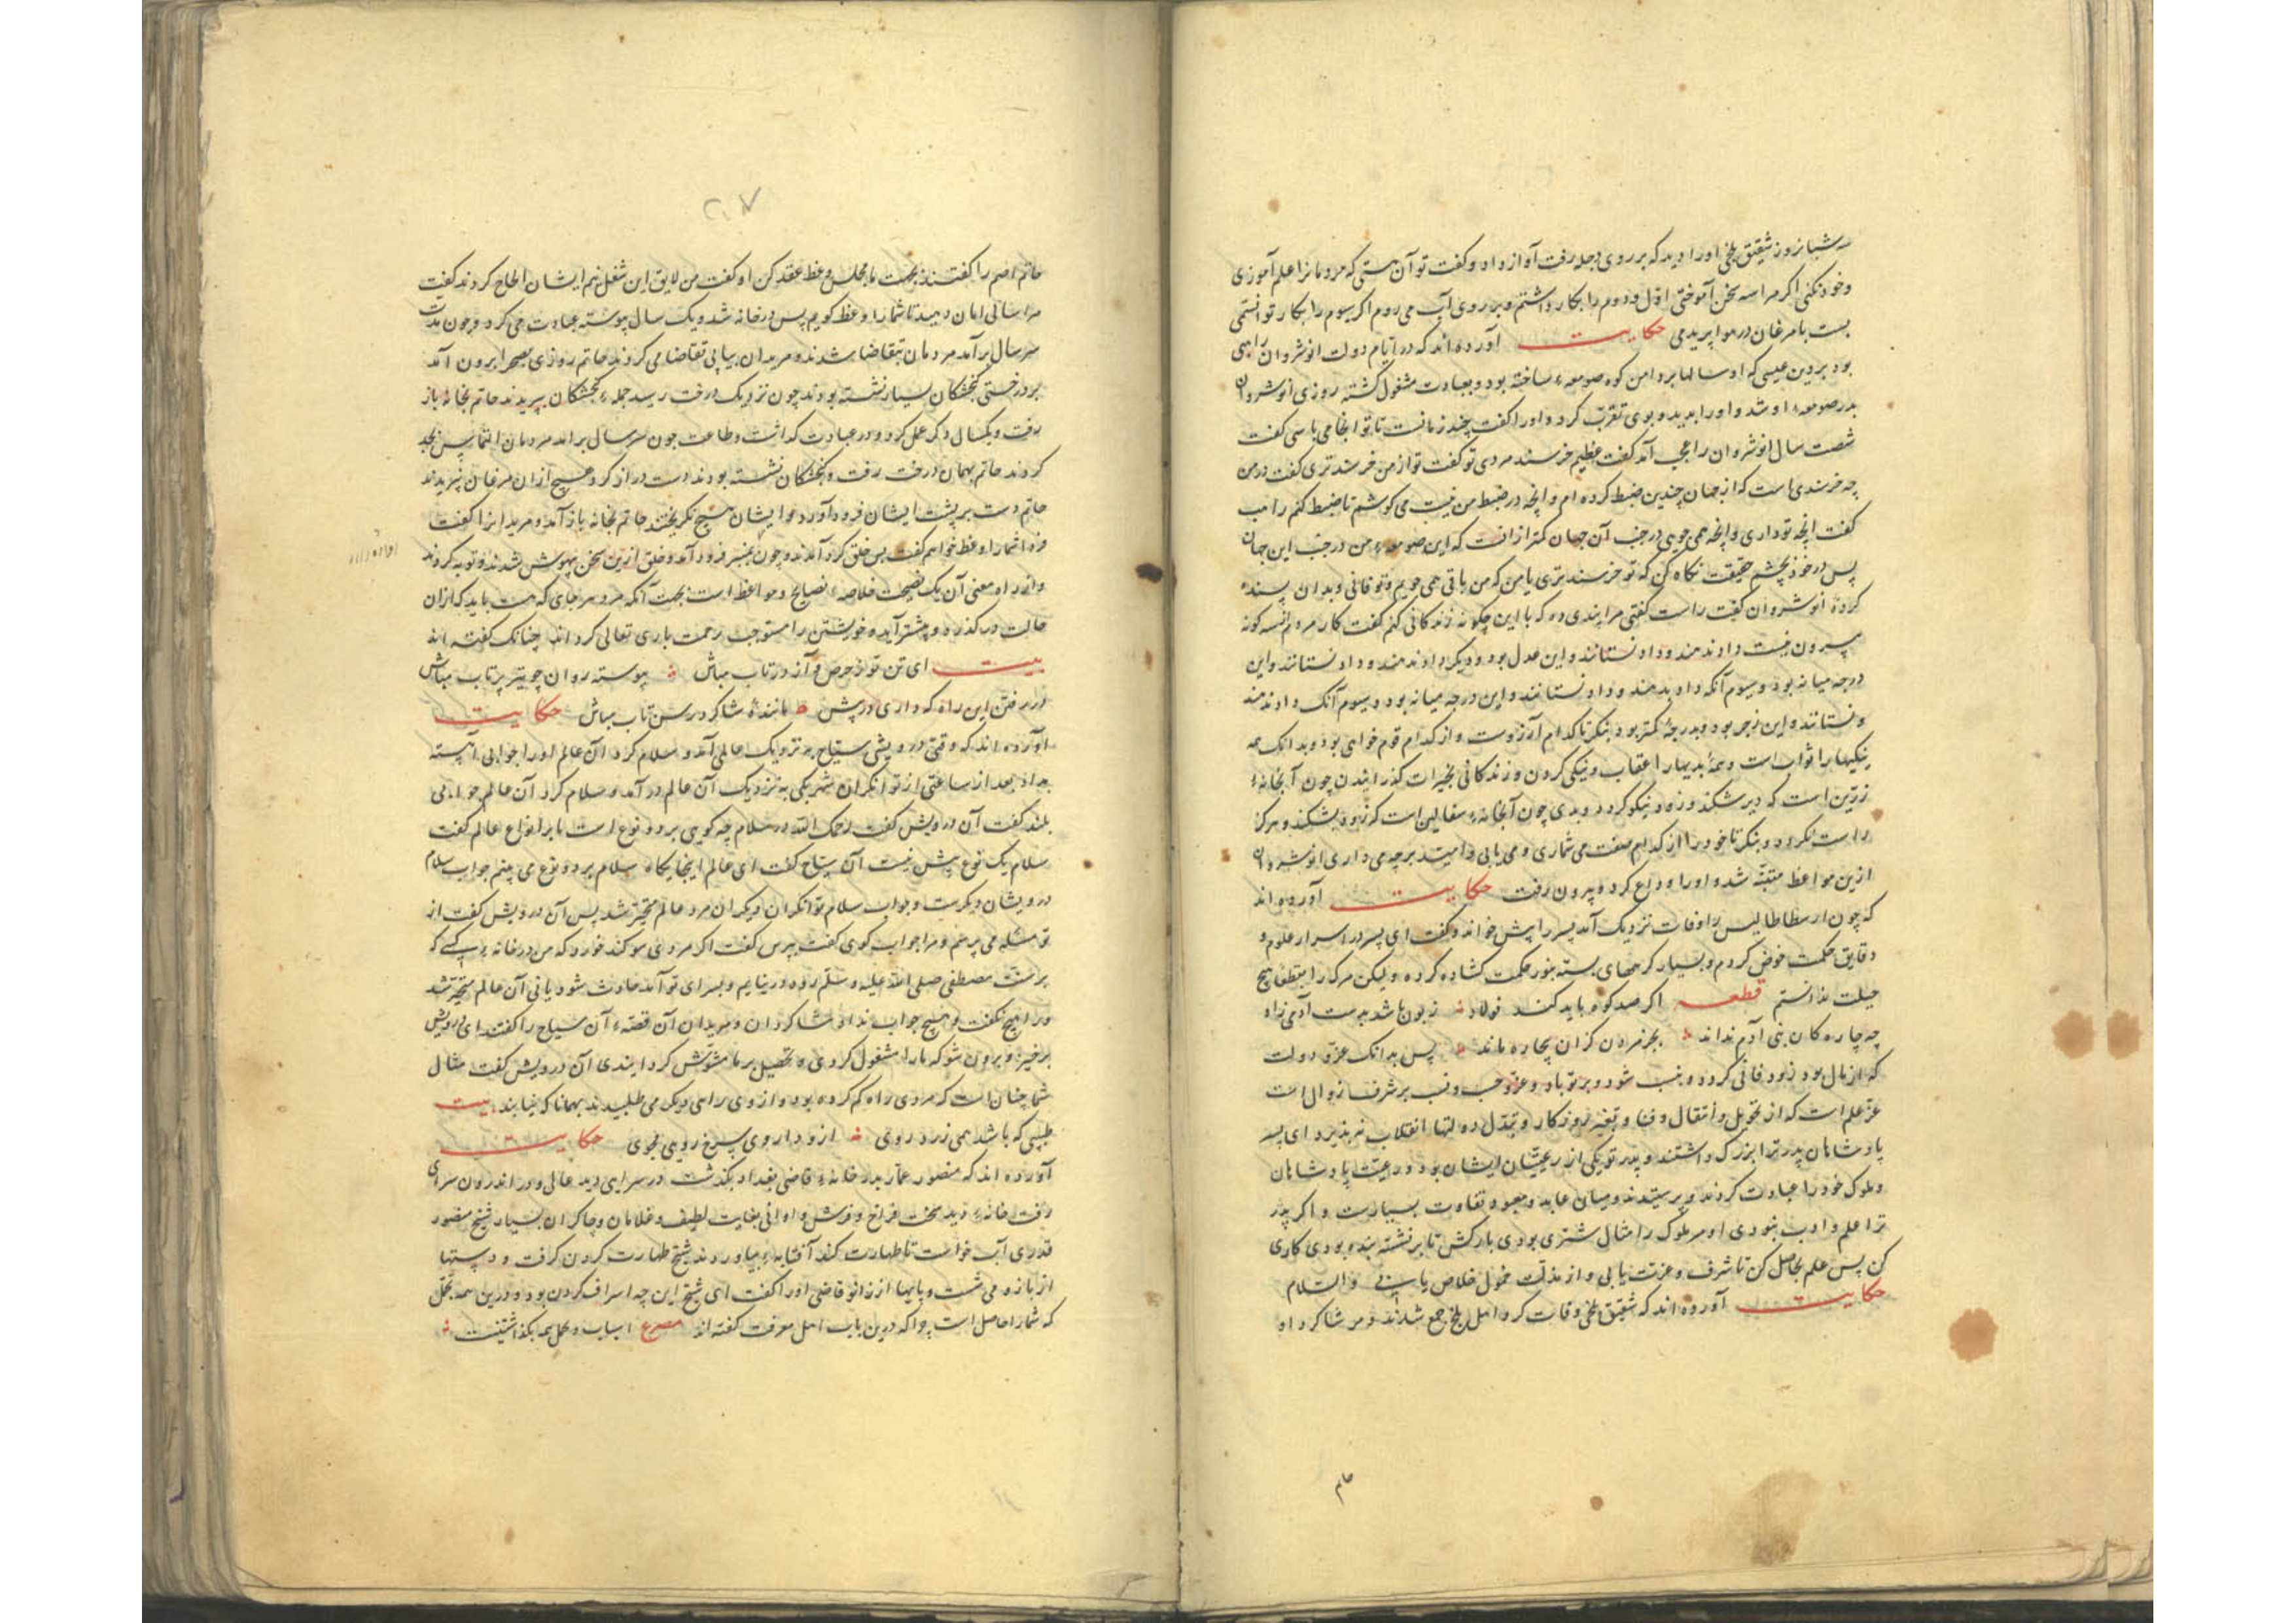 سه شبانروز شقیق بلخی اورا دید که بر روی دجله رفت آواز داد و گفت تو آن هستی که مردمانرا علم آموزی
وخود نکنی اکر مرا سه سخن آموختی اول و دوم را بکار داشتم و بر روی آب می روم اکر سیوم را بکار توانستمی
بست با مرغان در هوا پریدمی حکایت آورده اند که در ایام دولت انوشروان راهبی
بود بر دین عیسی که او سالها بر دامن کوه صومعه ساخته بود و بعبادت مشغول کشته روزی انوشروان
بدر صومعه او شد و اورا بدید و بوی تقرب کرد و اورا کفت چند زمانست تا تو اینجا می باشی کفت
شصت سال انوشروان را عجب آمد کفت عظیم خرسند مردی تو کفت تو از من خرسندتری کفت در من
چه خرسندی است که از جهان چندین ضبط کرده ام و انچه در ضبط من نیست می کوشم تا ضبط کنم راهب
کفت انچه تو داری و انچه همی جویی در جنب آن جهان کمتر از انست که این صومعه من در جنب این جهان
پس در خود بچشم حقیقت نکاه کن که تو خرسندتری یا من که من باقی همی جویم و تو فانی و بدان پسنده
کرده انوشروان کفت راست کفتی مرا پندی ده که با این چکونه زندکانی کنم کفت کار مردم از سه کونه
بیرون نیست داد دهند و داد نستانند و این عدل بود و دیکر داد دهند و داد نستانند و این
درجه میانه بود و سیوم آنکه داد بدهند و داد نستانند و این درجه میانه بود و سیوم آنک داد ندهند
و نستانند و این زجر بود و بدرجه کمتر بود بنکر تا کدام آرزوست و از کدام قوم خواهی بود و بدانک همه
نیکیهارا ثواب است و همه بدیهارا عقاب و نیکی کردن و زندکانی بخیرات کذرانیدن چون آبخانه
زرین است که دیر شکند و زود نیکو کردد و بدی چون آبخانه سفالین است که زود بشکند و هرکز
راست نکردد و بنکر تا خودرا از کدام صفت می شماری و می یابی و امید بر چه می داری انوشروان
ازین مواعظ متنبه شد و اورا وداع کرد و بیرون رفت حکایت آورده اند
که چون ارسطاطالیس را وفات نزدیک آمد پسررا پیش خواند و کفت ای پسر در اسرار علوم و
دقایق حکمت خوض کردم و بسیار کرههای بسته بنور حکمت کشاده کرده ولیکن مرک را هیچ
حیلت ندانستم قطعه اکر صد کوه باید کند فولاد زبون باشد بدست آدمی زاد
چه چاره کان بنی آدم نداند بجز مردن کزان بیچاره ماند پس بدانک عز و دولت
که از مال بود زود فانی کردد و بنسب شود و برتو باد و عز و حسب و نسب بر شرف زوال است
عز علم است که از تحویل و انتقال و فنا و تغیر روزکار و تبدل دولتها انقلاب نپذیرد ای پسر
پادشاهان پدر ترا بزرک داشتند و پدر تو یکی از رعیتان ایشان بود و رعیت پادشاهان
و ملوک خودرا عبادت کردند و پرستیدند و میان عابد و معبود تفاوت بسیارست و اکر پدر
ترا علم و ادب نبودی او مر ملوک را مثال شتری بودی بارکش تا بر نشسته بنده بودی کاری
کن پس علم حاصل کن تا شرف و عزت یابی و از مذلت خمول خلاص یابی والسلام
حکایت آورده اند که شقیق بلخی وفات کرد اهل بلخ جمع شدند و مر شاکرد او
حاتم
۲۰۷
حاتم اصم را کفتند بجهت ما مجلس وعظ عقد کن او کفت من لایق این شغل نیم ایشان الحاح کردند کفت
مرا سالی امان دهید تا شمارا وعظ کویم پس در خانه شد و یک سال پیوسته عبادت می کرد و چون مدت
سر سال برآمد مردمان بتقاضا شدند و مریدان بیاپی تقاضا می کردند حاتم روزی بصحرا برون آمد
بر درختی کنجشکان بسیار نشسته بودند چون نزدیک درخت رسید جمله کنجشکان بپریدند حاتم بخانه باز
رفت و یکسال دکر عمل کرد و در عبادت کذاشت و طاعت چون سر سال برآمد مردمان التماس بجد
کردند حاتم بهمان درخت رفت و کنجشکان نشسته بودند دست دراز کرد هیچ از ان مرغان نپریدند
حاتم دست بر پشت ایشان فرود آورد و ایشان هیچ نکریختند حاتم بخانه باز آمد و مریدانرا کفت
فردا شمارا وعظ خواهم کفت پس خلق کرد آمدند و چون بمنبر فرود آمد و خلق ازین سخن بیهوش شدند و توبه کردند
و از راه معنی آن یک نصیحت خلاصه نصایح و مواعظ است بجهت آنکه مرد هر جای که هست باید که از ان
حالت در کذرد و پیشتر آید و خویشتن را مستوجب رحمت باری تعالی کرداند چنانک کفته اند
بیت ای تن تو ز حرص و آز در تاب مباش پیوسته روان چو تیر پرتاب مباش
در رفتن این راه که داری در پیش مانندۀ شاکرد رسن تاب مباش حکایت
آورده اند که وقتی درویشی سیاح به نزدیک عالمی آمد و سلام کرد آن عالم اورا جوابی آهسته
بداد بعد از ساعتی از توانکران شهر یکی به نزدیک آن عالم در آمد و سلام کرد آن عالم جوابی
بلند کفت آن درویش کفت رحمک الله در سلام چه کویی بر دو نوع است یا بر انواع عالم کفت
سلام یک نوع بیش نیست آن سیاح کفت ای عالم اینجایکاه سلام بر دو نوع می بینم جواب سلام
درویشان دیکرست و جواب سلام توانکران دیکر ان مرد عالم متحیر شد پس آن درویش کفت از
تو مسئله می پرسم و مرا جواب کوی کفت بپرس کفت اکر مردی سوکند خورد که من در خانه کسی که
بر سنت مصطفی صلی الله علیه و سلم رود در نیایم و بسرای تو آمد حانث شود یا نی آن عالم متحیر شد
ورا هیچ نکفت و هیچ جواب نداد شاکردان و مریدان آن قصه آن سیاح را کفتند ای درویش
برخیز و برون شو که مارا مشغول کردی و تحصیل بر ما مشوش کردانیدی آن درویش کفت مثال
شما چنان است که مردی راه کم کرده بود و از وی راهی دیکر می طلبیدند بهمانا که نیابند بیت
طبیبی که باشد همی زرد روی ازو داروی سرخ رویی مجوی حکایت
آورده اند که منصور عمار بدر خانه قاضی بغداد بکذشت در سرایی دید عالی و در اندرون سرای
رفت خانه دید سخت فراخ و فرش و اوانی بغایت لطیف و غلامان و چاکران بسیار شیخ منصور
قدری آب خواست تا طهارت کند آفتابه بیاوردند شیخ طهارت کردن کرفت و دستها
از بازو می شست و پایها از زانو قاضی اورا کفت ای شیخ این چه اسراف کردن بود و درین همه تجمل
که شمارا حاصل است چرا که درین باب اهل معرفت کفته اند مصرع اسباب و تجمل همه بکذاشتنیست